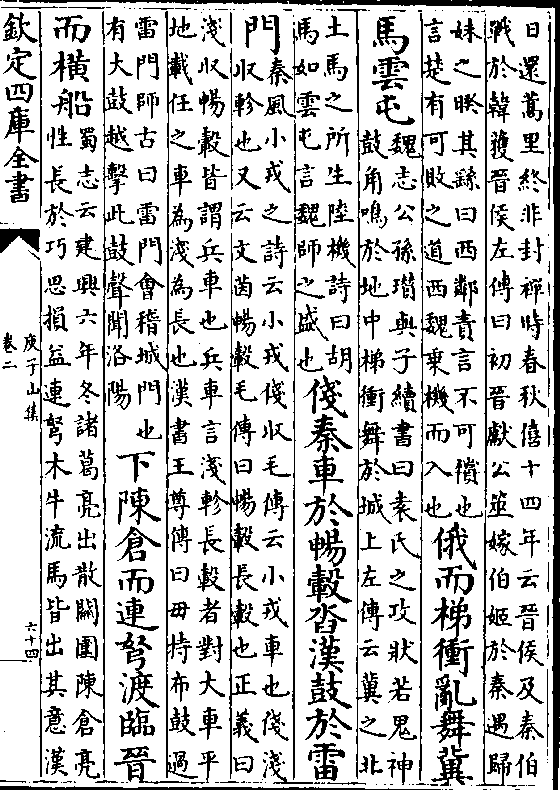 日還蒿里終非封禪時春秋僖十四年云晉侯及秦伯
戰於韓獲晉侯左傳曰初晉獻公筮嫁伯姬於秦遇歸
妹之睽其繇曰西鄰責言不可償也
言楚有可敗之道西魏乗機而入也
俄而梯衝亂舞冀
馬雲屯
魏志公孫瓚與子續書曰袁氏之攻狀若鬼神
鼓角鳴於地中梯衝舞於城上左傳云冀之北
土馬之所生陸機詩曰胡
馬如雲屯言魏師之盛也
俴秦車於暢轂沓漢鼓於雷
門
秦風小戎之詩云小戎俴収毛傳云小戎車也俴淺
収軫也又云文茵暢轂毛傳曰暢轂長轂也正義曰
淺収暢轂皆謂兵車也兵車言淺軫長轂者對大車平
地載任之車為淺為長也漢書王尊傳曰毋持布鼓過
雷門師古曰雷門會稽城門也
有大鼓越擊此鼓聲聞洛陽
下陳倉而連弩渡臨晉
而橫船
蜀志云建興六年冬諸葛亮出散關圍陳倉亮
性長於巧思損益連弩木牛流馬皆出其意漢
欽定四庫全書
庾子山集
卷二
六十四